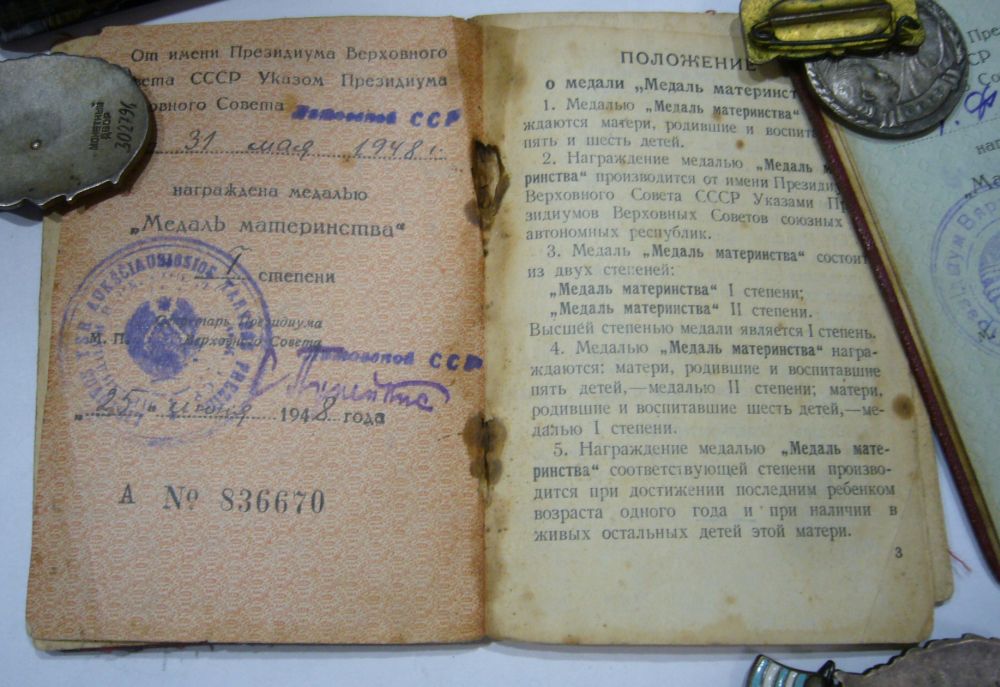 От имени Президиума Верховного
Совета СССР Указом Президиума
Верховного Совета Литовской ССР
31 мая 1948 г.
награждена медалью
„Медаль материнства“
I степени
Секретарь Президиума
М. П. Верховного Совета
Литовской ССР
„25“ июня 1948 года
А № 836670
AUKŠČIAUSIOSIOS TARYBOS
МОНЕТНЫЙ
ДВОР
302796
ПОЛОЖЕНИЕ
о медали „Медаль материнст
1. Медалью „Медаль материнства“
ждаются матери, родившие и воспита
пять и шесть детей.
2. Награждение медалью „Медаль м
ринства“ производится от имени Президиу
Верховного Совета СССР Указами П
зидиумов Верховных Советов союзных
автономных республик.
3. Медаль „Медаль материнства“ состоит
из двух степеней:
„Медаль материнства“ I степени;
„Медаль материнства“ II степени.
Высшей степенью медали является I степень.
4. Медалью „Медаль материнства“ награ-
ждаются: матери, родившие и воспитавшие
пять детей,—медалью II степени; матери,
родившие и воспитавшие шесть детей,—ме-
далью I степени.
5. Награждение медалью „Медаль мате-
ринства“ соответствующей степени произво-
дится при достижении последним ребенком
возраста одного года и при наличии в
живых остальных детей этой матери.
3
През
СР
Со
наг
„Ма